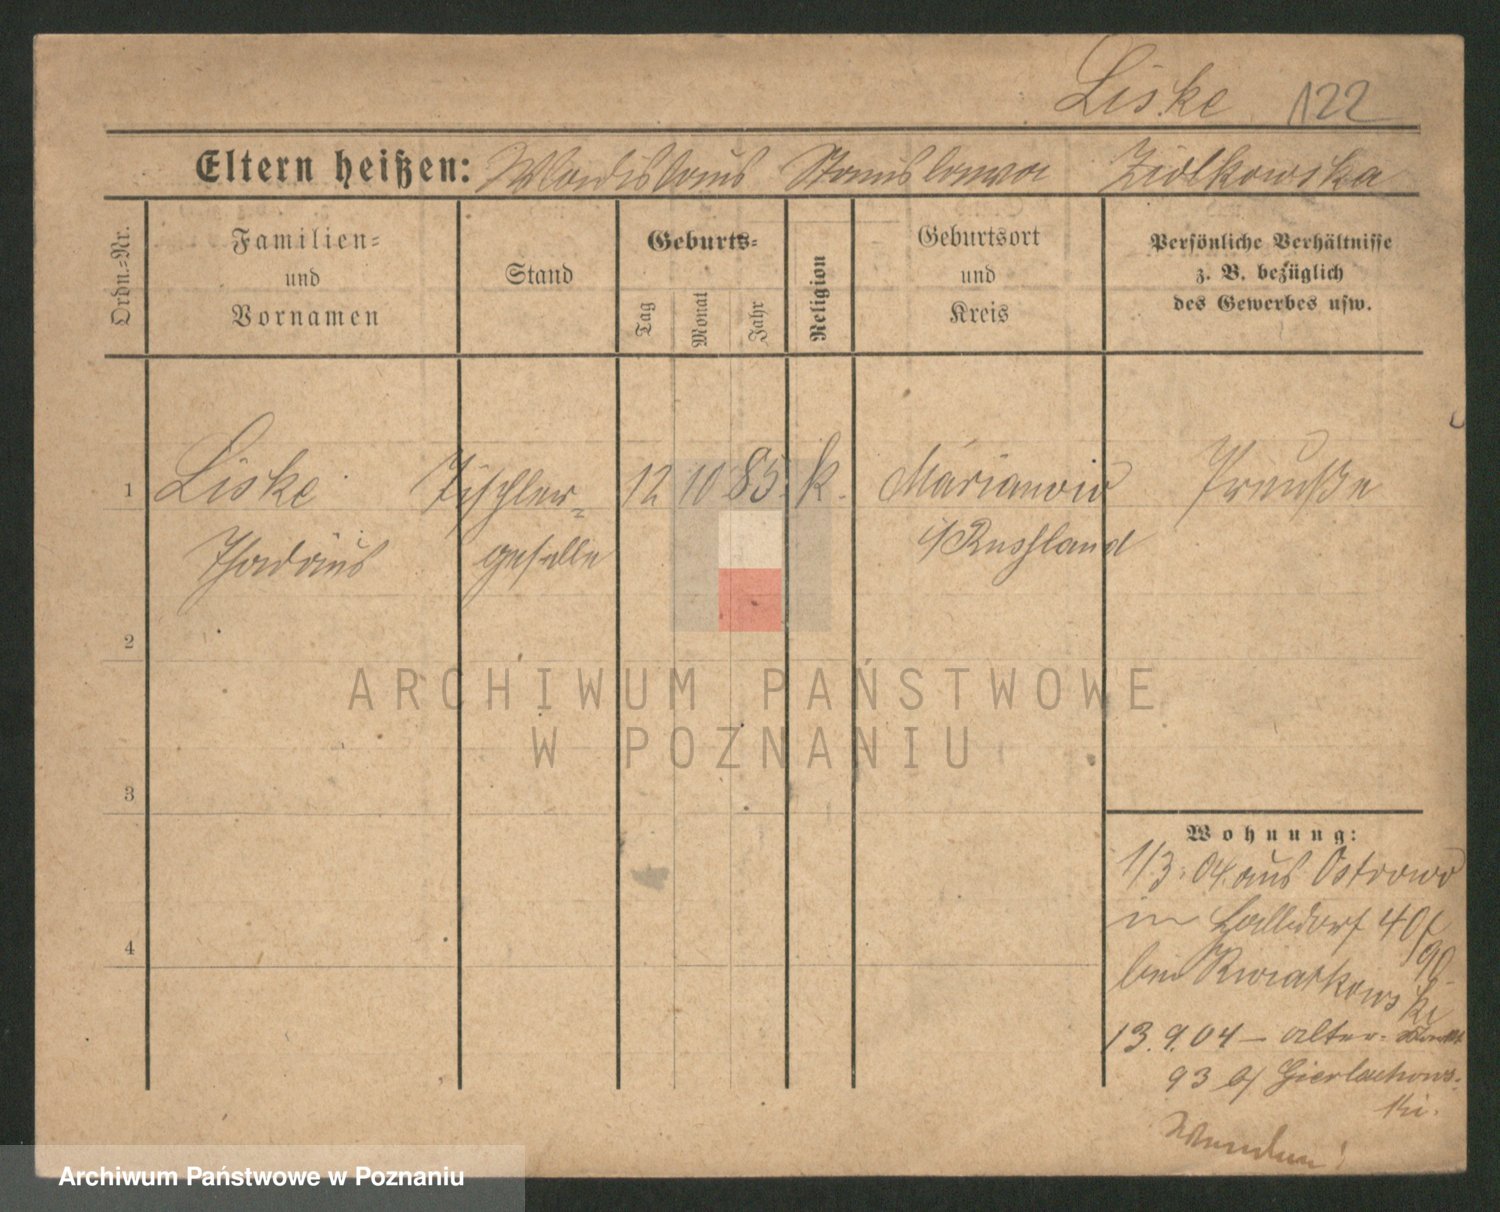 Liske 122
Eltern heißen: Wladislaus Stanislawa Ziolkowska
Ordn.-Nr.
Familien-
und
Vornamen
Stand
Geburts-
Tag
Monat
Jahr
Religion
Geburtsort
und
Kreis
Persönliche Verhältnisse
z. B. bezüglich
des Gewerbes usw.
1 Liske Tischler- 12 10 85. k. Marianow Preuße
Thadäus geselle i/Russland
2
3
4
Wohnung:
1/3. 04. aus Ostrowo
in 40/
90
bei Kwiatkowski
13. 9. 04 – alter
93 b/ Gierlachows-
ki.
Wenden!
ARCHIWUM PAŃSTWOWE
W POZNANIU
Archiwum Państwowe w Poznaniu